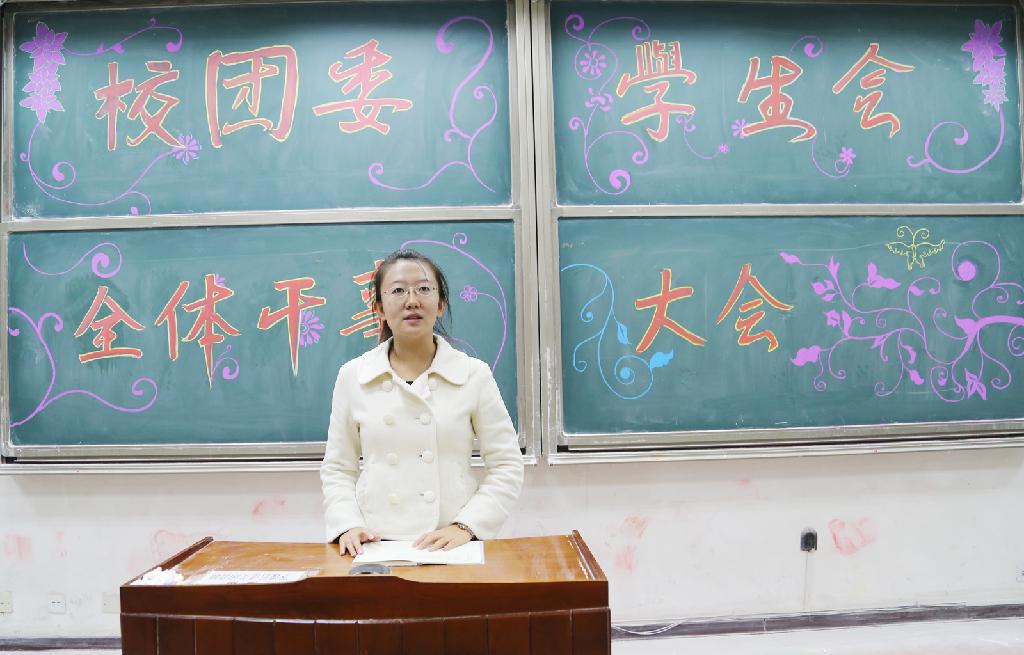 校团委
學生会
全体干事
大会